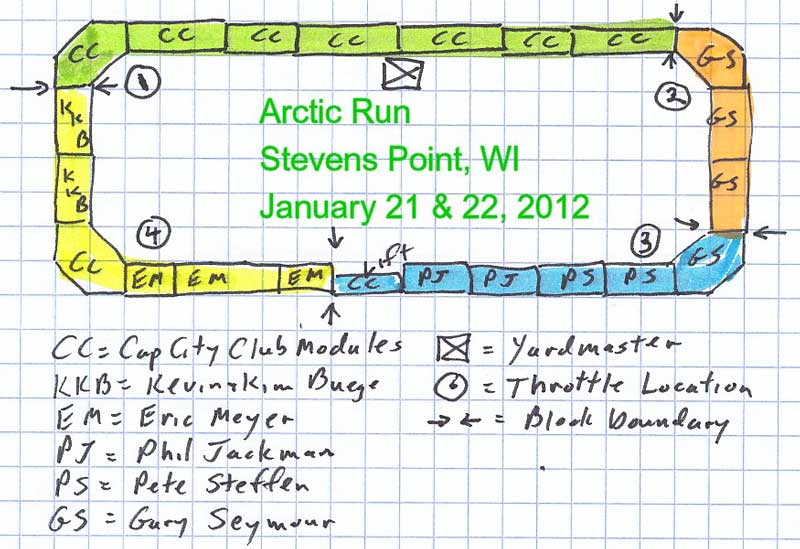 CC CC CC CC CC CC CC GS
1 2
KKB GS
Arctic Run
Stevens Point, WI
January 21 & 22, 2012
KKB GS
4 3
CC EM EM EM CC PJ PJ PS PS GS
CC = Cap City Club Modules
KKB = Kevin + Kim Buege
EM = Eric Meyer
PJ = Phil Jackman
PS = Pete Steffen
GS = Gary Seymour
= Yardmaster
= Throttle Location
→ ← = Block boundary